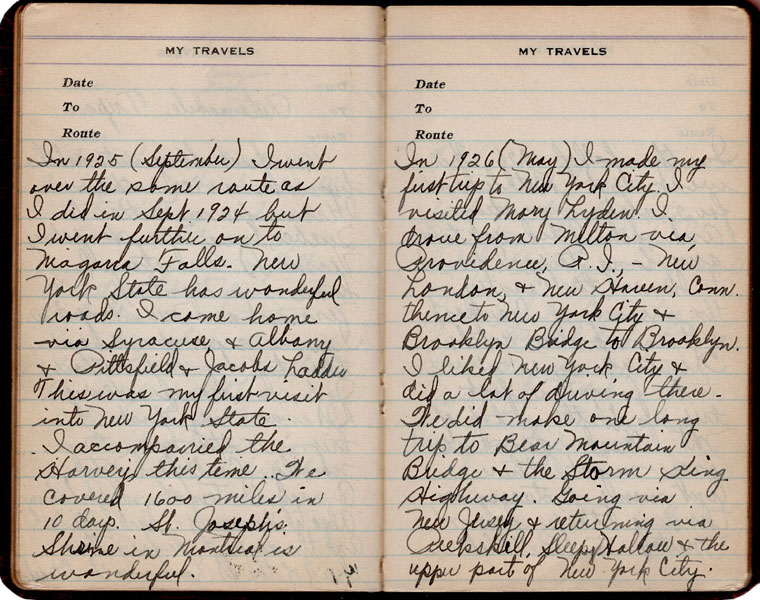 MY TRAVELS
Date
To
Route
In 1925 (September) I went
over the same route as
I did in Sept. 1924 but
I went further on to
Niagara Falls. New
York State has wonderful
roads. I came home
via Syracuse & Albany
& Pittsfield & Jacobs Ladder
This was my first visit
into New York State.
I accompanied the
Harveys this time. We
covered 1600 miles in
10 days. St. Joseph's
Shrine in Montreal is
wonderful.
MY TRAVELS
Date
To
Route
In 1926 (May) I made my
first trip to New York City. I
visited Mary Lyden. I
drove from Milton via
Providence, R.I., - New
London, & New Haven, Conn.
thence to New York City &
Brooklyn Bridge to Brooklyn.
I liked New York City &
did a lot of driving there.
We did make one long
trip to Bear Mountain
Bridge & the Storm King
Highway. Going via
New Jersey & returning via
Peekskill, Sleepy Hallow & the
upper part of New York City.